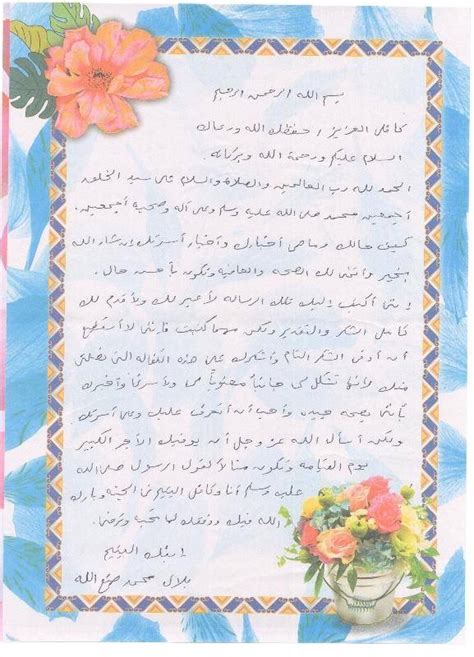 بسم الله الرحمن الرحيم
كافلي العزيز / حفظك الله ورعاك
السلام عليكم ورحمة الله وبركاته.
الحمد لله رب العالمين والصلاة والسلام على سيد الخلق
أجمعين محمد صلى الله عليه وسلم وعلى آله وصحبه أجمعين.
كيف حالك وما هي أخبارك وأخبار أسرتك إن شاء الله
بخير وأتمنى لك الصحه والعافيه وتكون بأحسن حال.
إنني أكتب إليك تلك الرساله لأعبر لك ولأقدم لك
كامل الشكر والتقدير ولكن مهما كتبت فإنني لا أستطيع
أن أوفي الشكر التام وأشكرك على هذه الكفاله التي تصلني
منك لأنها تشكل في حياتنا
بأنني بصحه جيده وأحب أن أتعرف عليك وعلى أسرتك
ولكن أسأل الله عز وجل أن يوفيك الأجر الكبير
يوم القيامة وتكون لقول الرسول صلى الله
عليه وسلم أنا وكافل اليتيم في الجنه وبارك
الله فيك ووفقك لما تحبه وترضى.
إبنك اليتيم
بلال محمد صنع الله